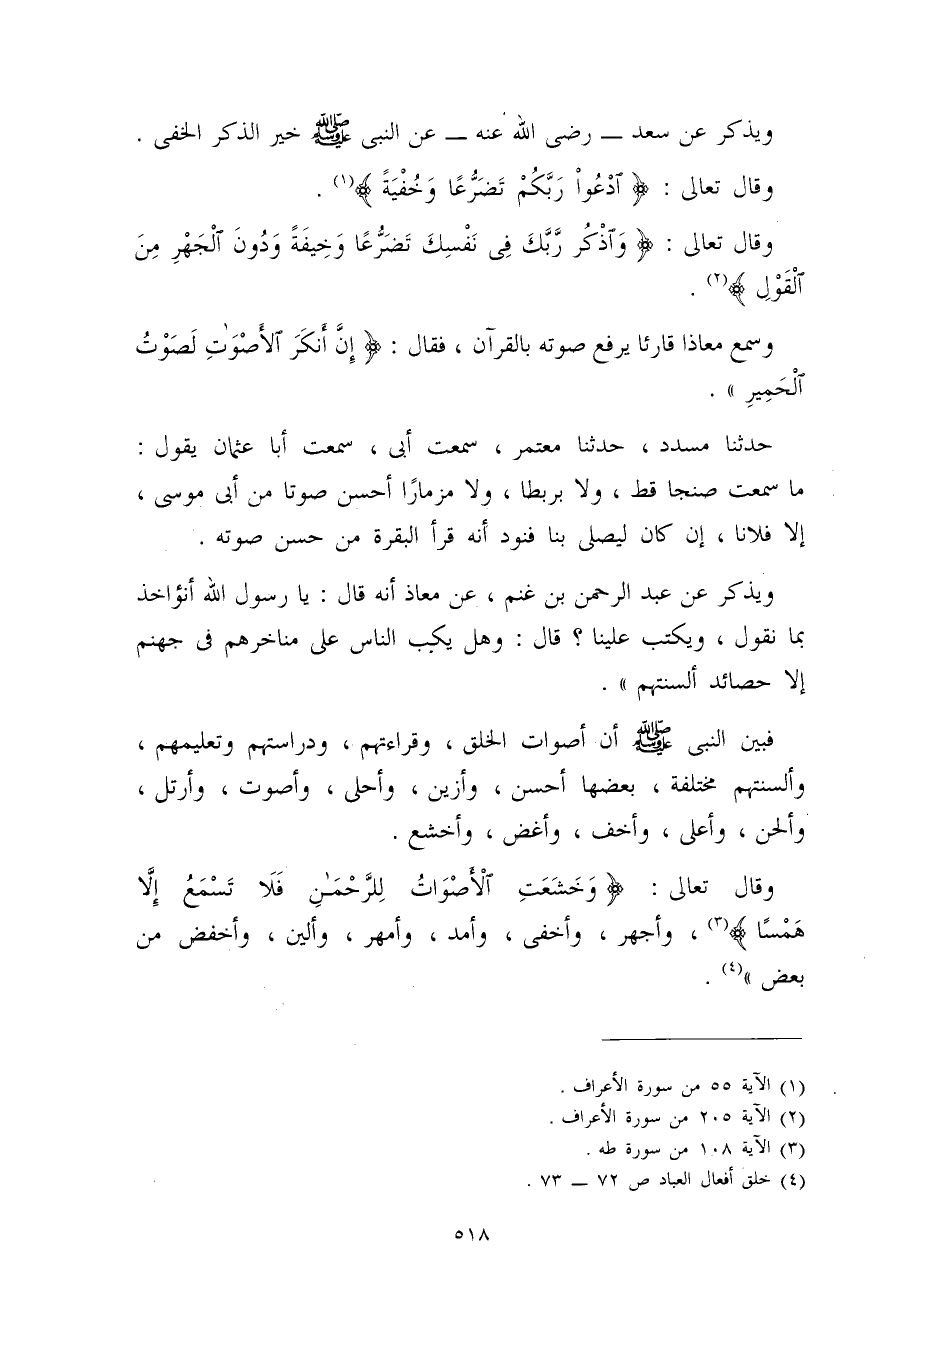 ويذكر عن سعد ــ رضى الله عنه ــ عن النبى ﷺ خير الذكر الخفى .
وقال تعالى : ﴿ ٱدْعُوا۟ رَبَّكُمْ تَضَرُّعًا وَخُفْيَةً ﴾(١) .
وقال تعالى : ﴿ وَٱذْكُر رَّبَّكَ فِى نَفْسِكَ تَضَرُّعًا وَخِيفَةً وَدُونَ ٱلْجَهْرِ مِنَ
ٱلْقَوْلِ ﴾(٢) .
وسمع معاذا قارئا يرفع صوته بالقرآن ، فقال : ﴿ إِنَّ أَنكَرَ ٱلْأَصْوَٰتِ لَصَوْتُ
ٱلْحَمِيرِ » .
حدثنا مسدد ، حدثنا معتمر ، سمعت أبى ، سمعت أبا عثمان يقول :
ما سمعت صنجا قط ، ولا بربطا ، ولا مزمارًا أحسن صوتا من أبى موسى ،
إلا فلانا ، إن كان ليصلى بنا فنود أنه قرأ البقرة من حسن صوته .
ويذكر عن عبد الرحمن بن غنم ، عن معاذ أنه قال : يا رسول الله أنؤاخذ
بما نقول ، ويكتب علينا ؟ قال : وهل يكب الناس على مناخرهم فى جهنم
إلا حصائد ألسنتهم » .
فبين النبى ﷺ أن أصوات الخلق ، وقراءتهم ، ودراستهم وتعليمهم ،
وألسنتهم مختلفة ، بعضها أحسن ، وأزين ، وأحلى ، وأصوت ، وأرتل ،
وألحن ، وأعلى ، وأخف ، وأغض ، وأخشع .
وقال تعالى : ﴿ وَخَشَعَتِ ٱلْأَصْوَاتُ لِلرَّحْمَـٰنِ فَلَا تَسْمَعُ إِلَّا
هَمْسًا ﴾(٣) ، وأجهر ، وأخفى ، وأمد ، وأمهر ، وألين ، وأخفض من
بعض »(٤) .
(١) الآية ٥٥ من سورة الأعراف .
(٢) الآية ٢٠٥ من سورة الأعراف .
(٣) الآية ١٠٨ من سورة طه .
(٤) خلق أفعال العباد ص ٧٢ ــ ٧٣ .
٥١٨